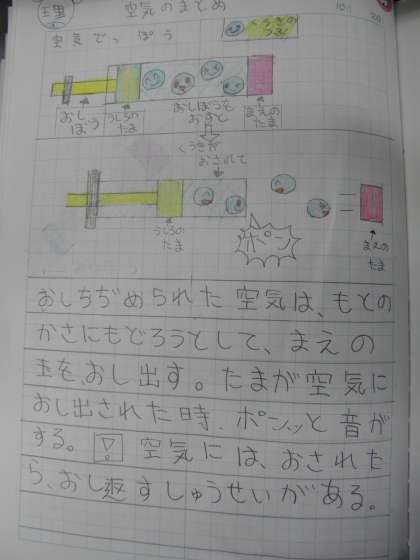 理
空気のまとめ
空気で、ぽう
くうきの
つぶ
おし
ぼう
うしろの
たま
おしぼうを
おすと
まえの
たま
くうきが
おされて
うしろの
たま
ポン
まえの
たま
おしちぢめられた空気は、もとの
かさにもどろうとして、まえの
玉を、おし出す。たまが空気に
おし出された時、ポンッと音が
する。! 空気には、おされた
ら、おし返すしゅうせいがある。